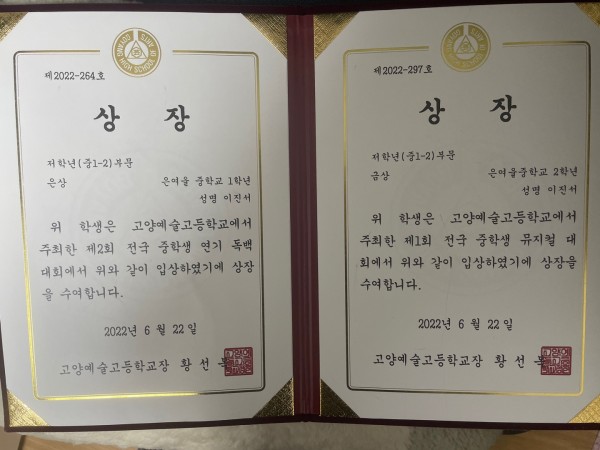 제2022-264호
상 장
저학년(중1-2)부문
은상 은여울 중학교 1학년
성명 이진서
위 학생은 고양예술고등학교에서
주최한 제2회 전국 중학생 연기 독백
대회에서 위와 같이 입상하였기에 상장
을 수여합니다.
2022년 6월 22일
고양예술고등학교장 황선
제2022-297호
상 장
저학년(중1-2)부문
금상 은여울중학교 2학년
성명 이진서
위 학생은 고양예술고등학교에서
주최한 제1회 전국 중학생 뮤지컬 대
회에서 위와 같이 입상하였기에 상장을
수여합니다.
2022년 6월 22일
고양예술고등학교장 황선